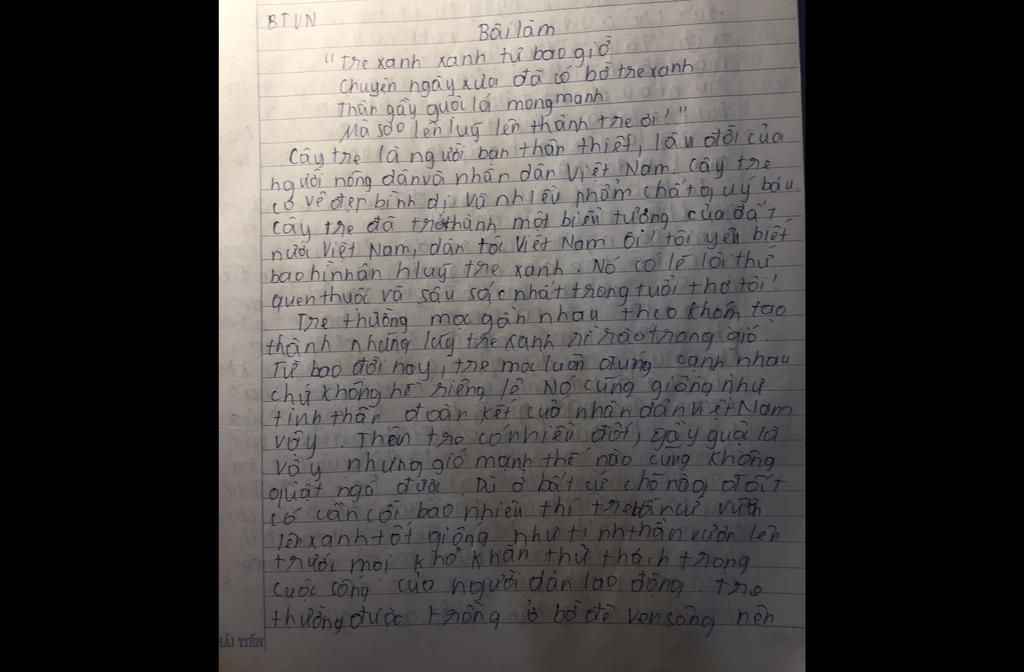 BTVN.
Bài làm
"Tre xanh xanh tự bao giờ
Chuyện ngày xưa đã có bờ tre xanh
Thân gầy guộc lá mong manh
Mà sao lên luỹ lên thành tre ơi!"
Cây tre là người bạn thân thiết, lâu đời của
người nông dân và nhân dân Việt Nam. Cây tre
có vẻ đẹp bình dị và nhiều phẩm chất quý báu
cây tre đã trở thành một biểu tượng của đất
nước Việt Nam, dân tộc Việt Nam ôi! tôi yêu biết
bao hình ảnh luỹ tre xanh. Nó có lẽ là thứ
quen thuộc và sâu sắc nhất trong tuổi thơ tôi!
Tre thường mọc gần nhau theo khóm tạo
thành những luỹ tre xanh rì rào trong gió.
Từ bao đời nay, tre mọc luôn đứng cạnh nhau
chứ không hề riêng lẻ Nó cũng giống như
tinh thần đoàn kết của nhân dân Việt Nam
vậy. Thân tre có nhiều đốt, gầy guộc là
vậy nhưng gió mạnh thế nào cũng không
quật ngã được. Dù ở bất cứ chỗ nào, đất
có cằn cỗi bao nhiêu thì tre vẫn cứ vươn
lên xanh tốt giống như tinh thần vươn lên
trước mọi khó khăn thử thách trong
cuộc sống của người dân lao động. Tre
thường được trồng ở bờ đê ven sông nên
HẢI TIẾN